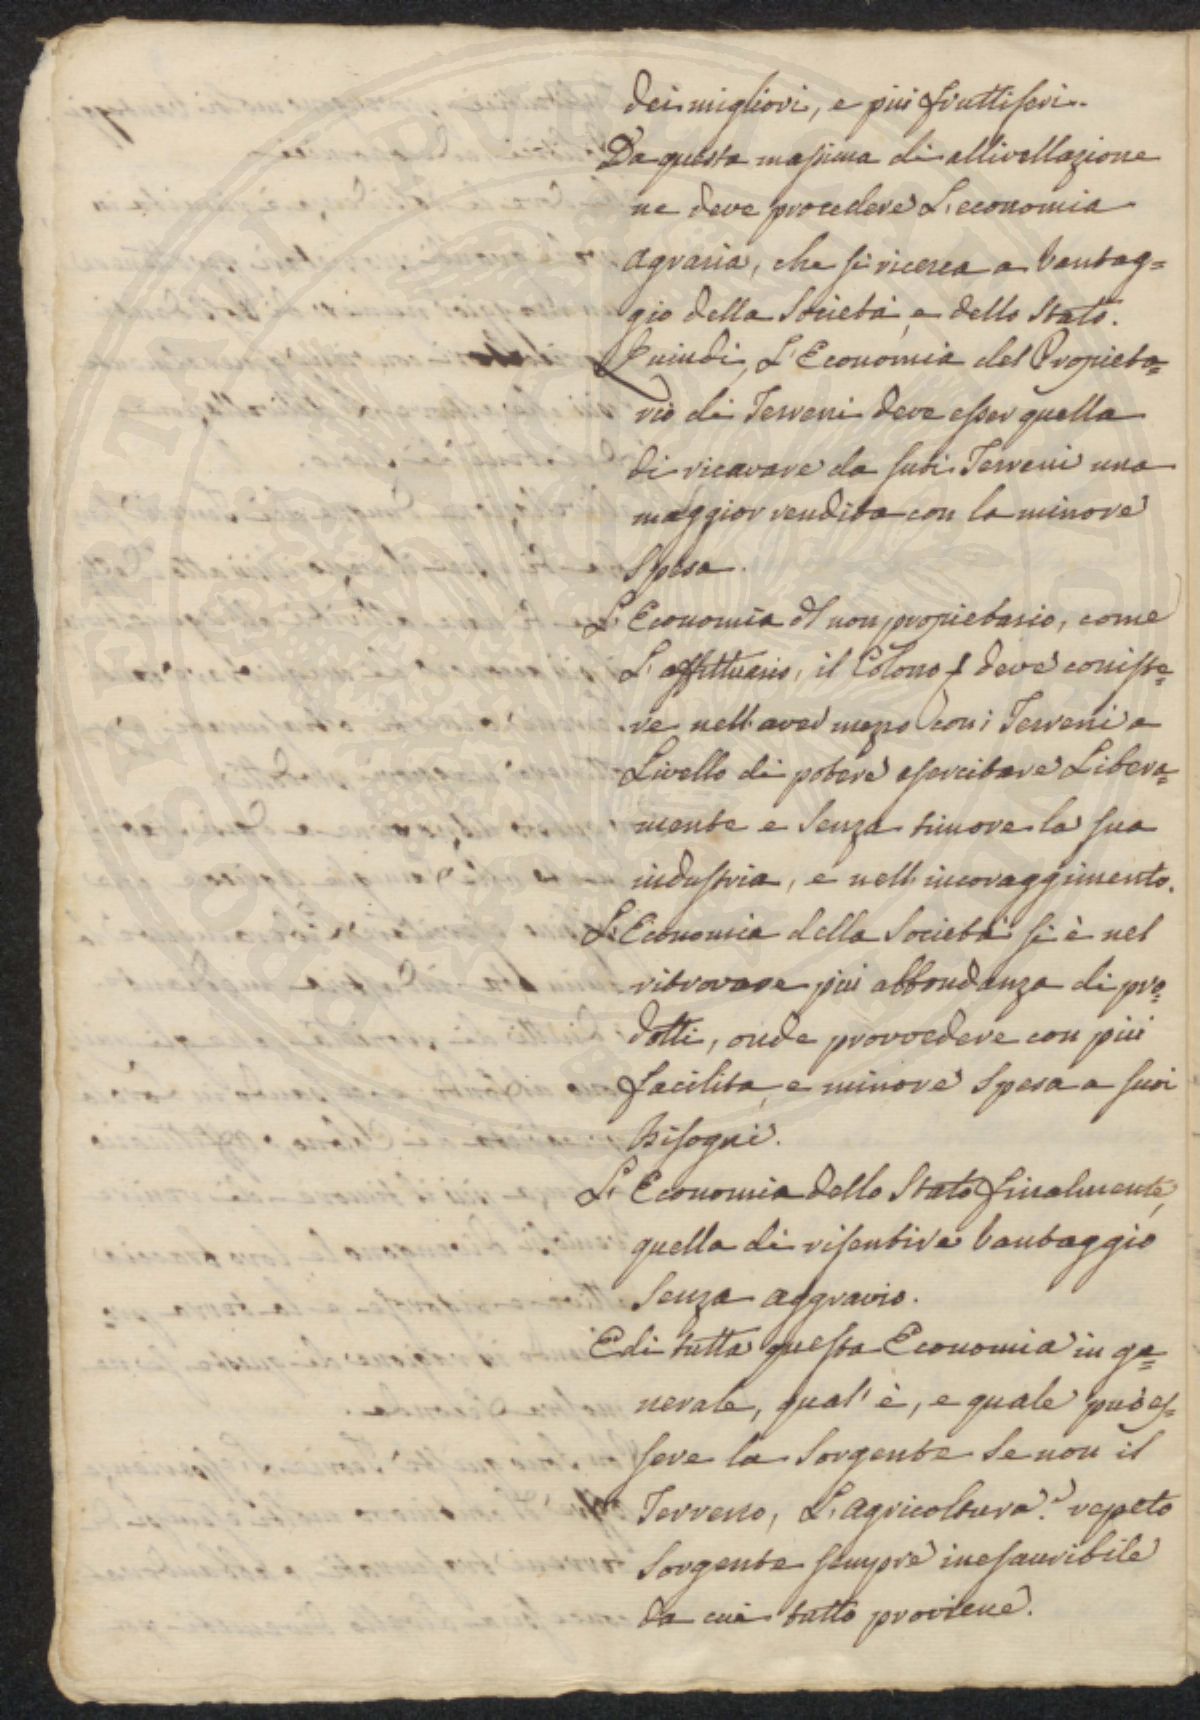 dei migliori, e più fruttiferi.
Da questa massima di allivellazione
ne deve procedere L'economia
agraria, che si ricerca a vantag=
gio della Società, e dello Stato.
Quindi, L'Economia del Propieta=
rio di Terreni deve esser quella
di ricavare da suoi Terreni una
maggior rendita con la minore
spesa.
L'Economia del non propietario, come
L'affittuario, il Colono, deve consiste=
re nell'aver mezzo con i Terreni a
Livello di potere esercitare Libera=
mente e senza timore la sua
industria, e nell'incoraggimento.
L'Economia della Società si è nel
ritrovare più abbondanza di pro=
dotti, onde provvedere con più
facilità, e minore spesa a suoi
bisogni.
L'Economia dello Stato finalmente,
quella di risentire vantaggio
senza aggravio.
E di tutta questa Economia in ge=
nerale, qual'è, e quale può es=
sere la sorgente se non il
Terreno, L'agricoltura? repeto
sorgente sempre inesauribile
da cui tutto proviene.